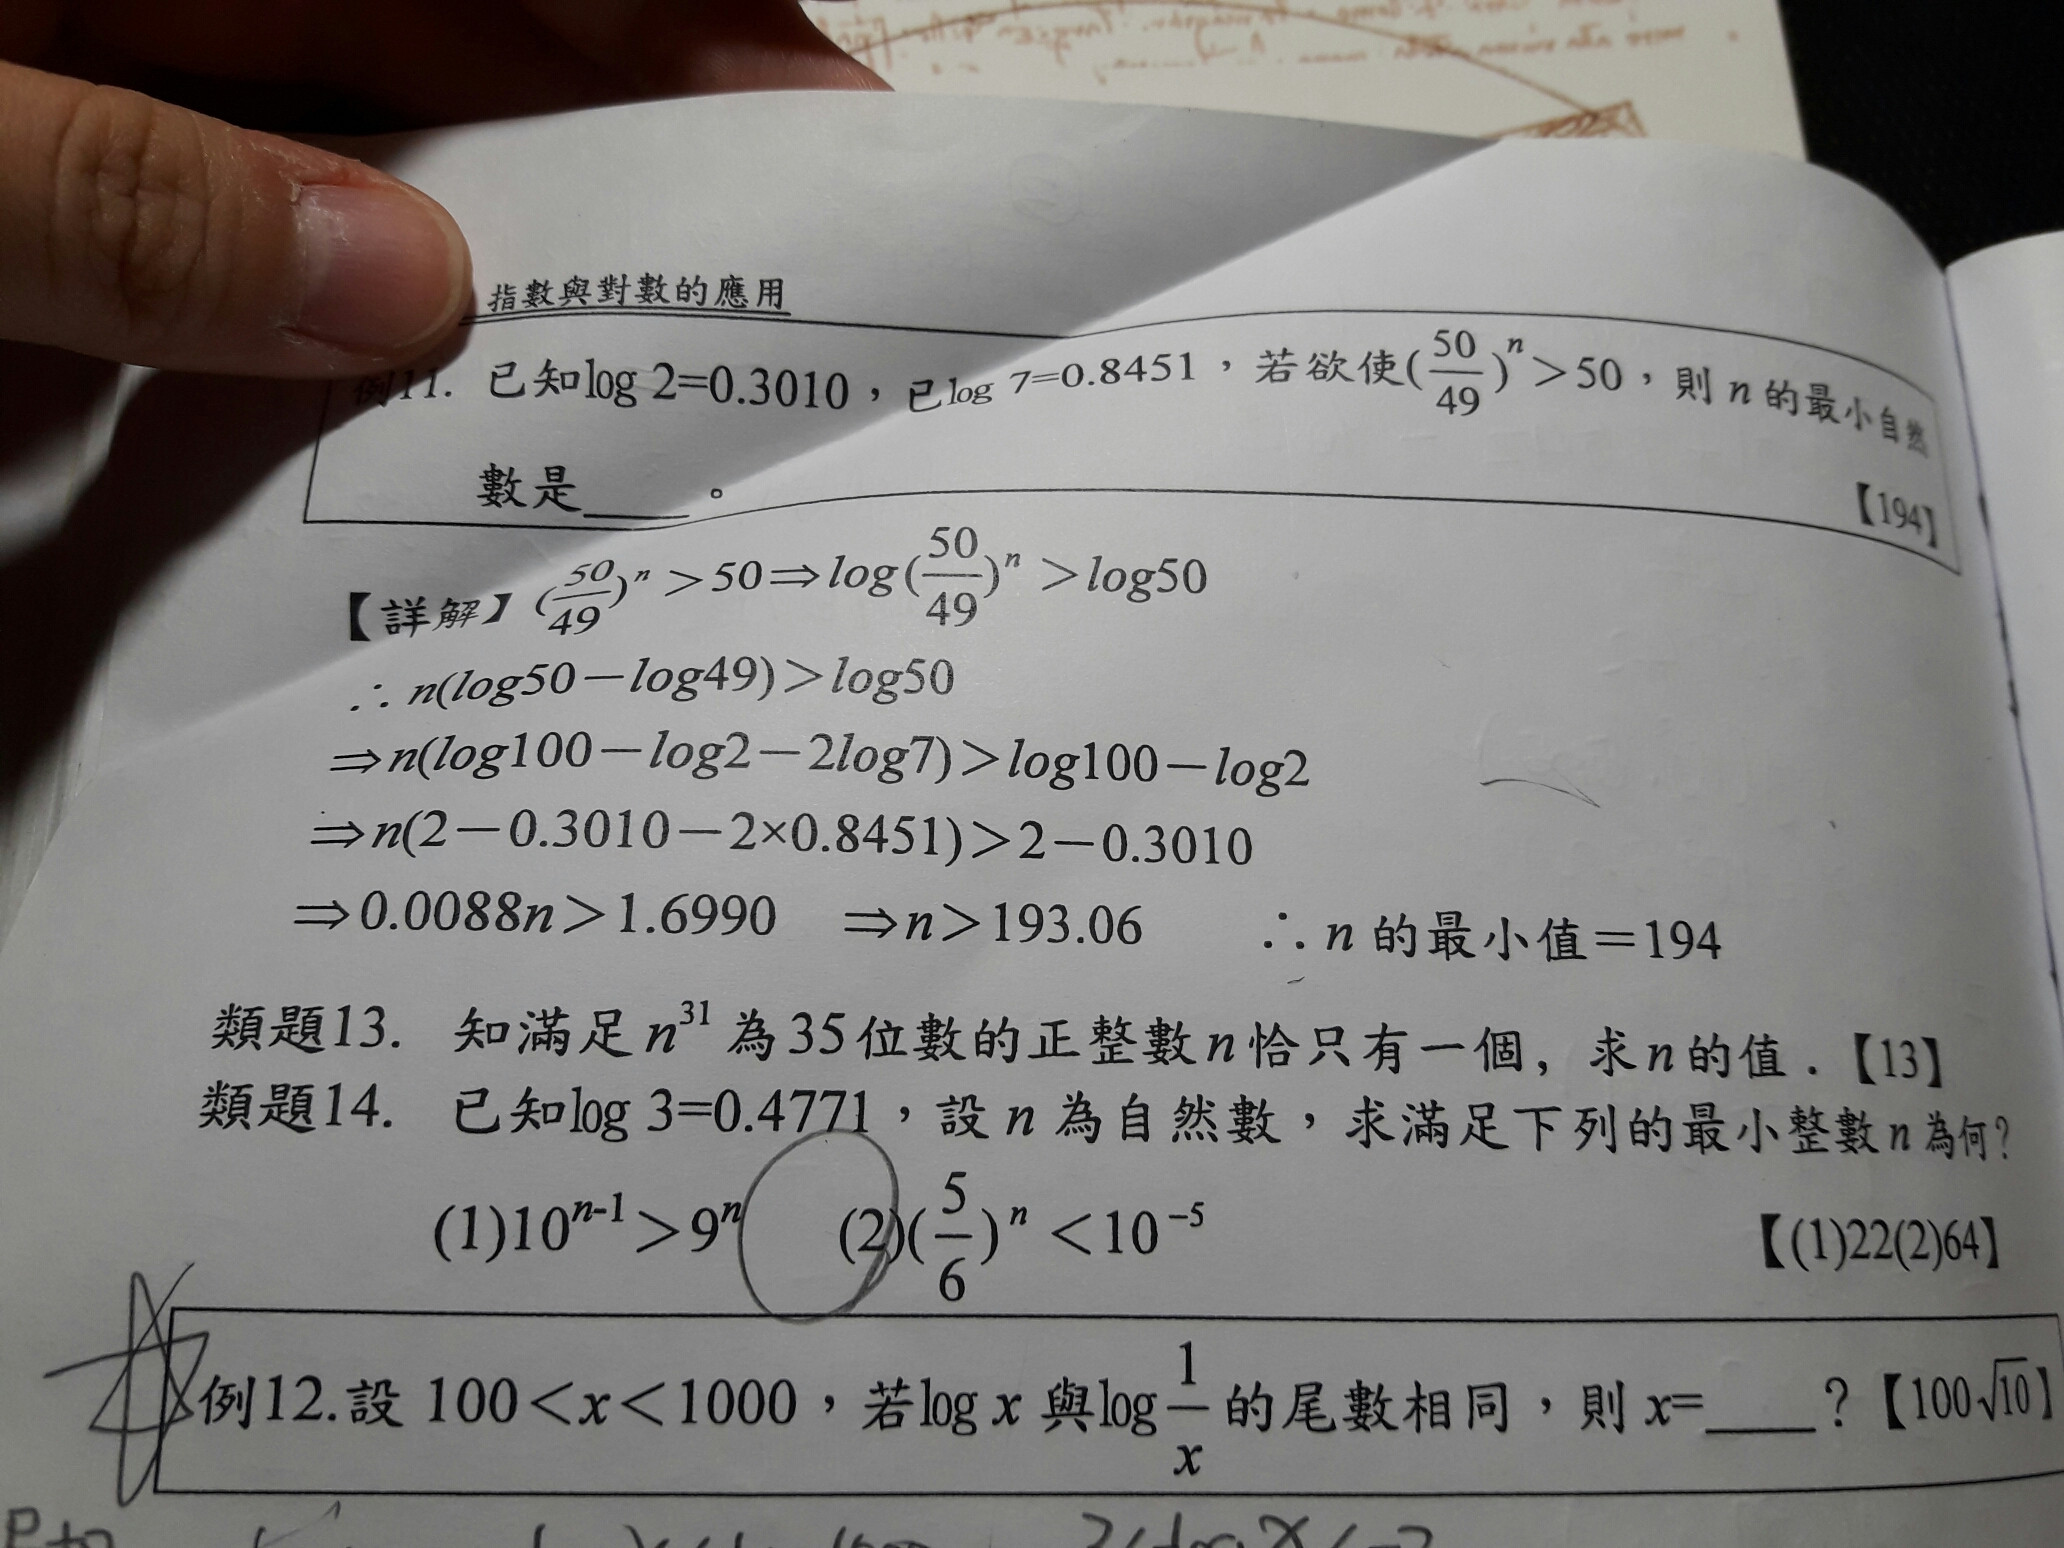 指數與對數的應用
例11. 已知log 2=0.3010，已log 7=0.8451，若欲使(50/49)^n＞50，則 n 的最小自然
數是____。
【194】
【詳解】(50/49)^n＞50⇒log(50/49)^n＞log50
∴n(log50－log49)＞log50
⇒n(log100－log2－2log7)＞log100－log2
⇒n(2－0.3010－2×0.8451)＞2－0.3010
⇒0.0088n＞1.6990 ⇒n＞193.06 ∴n 的最小值＝194
類題13. 知滿足n^31為35位數的正整數n恰只有一個，求n的值．【13】
類題14. 已知log 3=0.4771，設 n 為自然數，求滿足下列的最小整數 n 為何？
(1)10^{n-1}＞9^n (2)(5/6)^n＜10^{－5} 【(1)22(2)64】
例12.設 100＜x＜1000，若log x 與log 1/x 的尾數相同，則 x=____？【100√10】